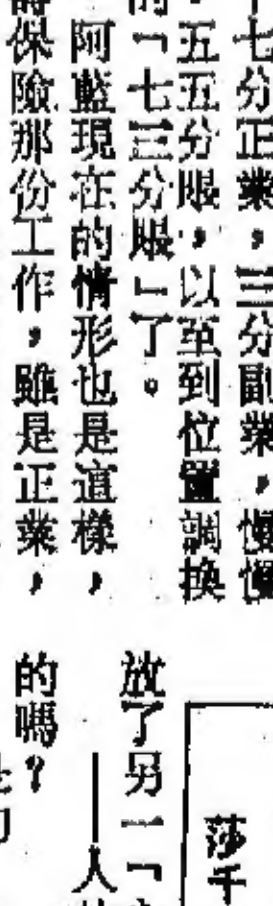 七分正業,三分副業,慢慢
五五分賬,以至到位置調換
「七三分賬」了。
阿藍現在的情形也是這樣,
保險那份工作,雖是正業,
莎千
放了另一「
——人
的嗎?